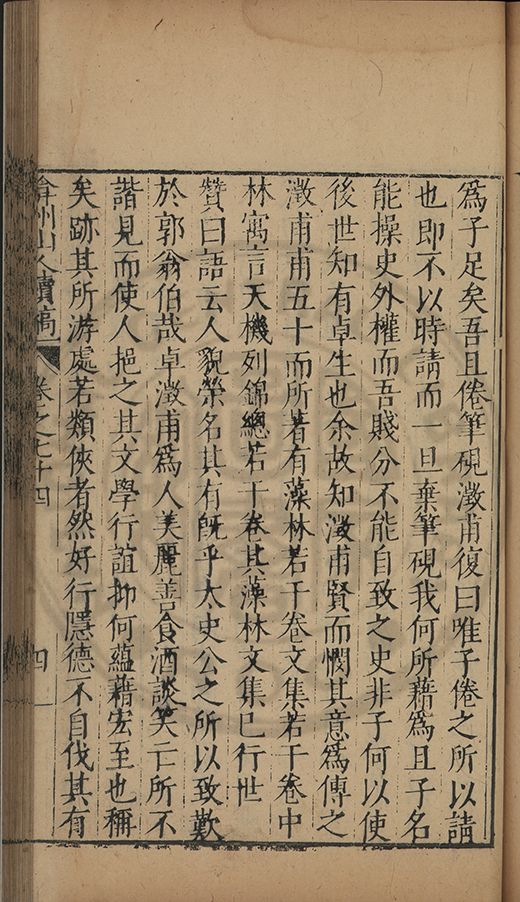 爲子足矣吾且倦筆硯澂甫復曰唯子倦之所以請
也即不以時請而一旦棄筆硯我何所藉爲且子名
能操史外權而吾賤分不能自致之史非子何以使
後世知有卓生也余故知澂甫賢而憫其意爲傳之
澂甫甫五十而所著有藻林若干卷文集若干卷中
林寓言天機列錦總若干卷其藻林文集已行世
贊曰語云人貌榮名其有旣乎太史公之所以致歎
於郭翁伯哉卓澂甫爲人美麗善食酒談笑亡所不
諧見而使人挹之其文學行誼抑何蘊藉宏至也稱
矣跡其所游處若類俠者然好行隱德不自伐其有
弇州山人續稿 卷之七十四 四